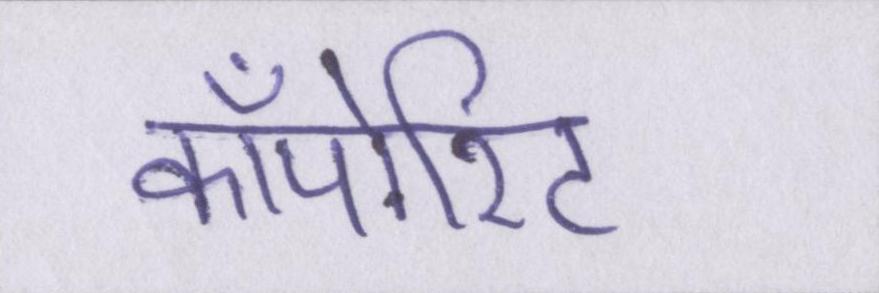 काँपोरिट